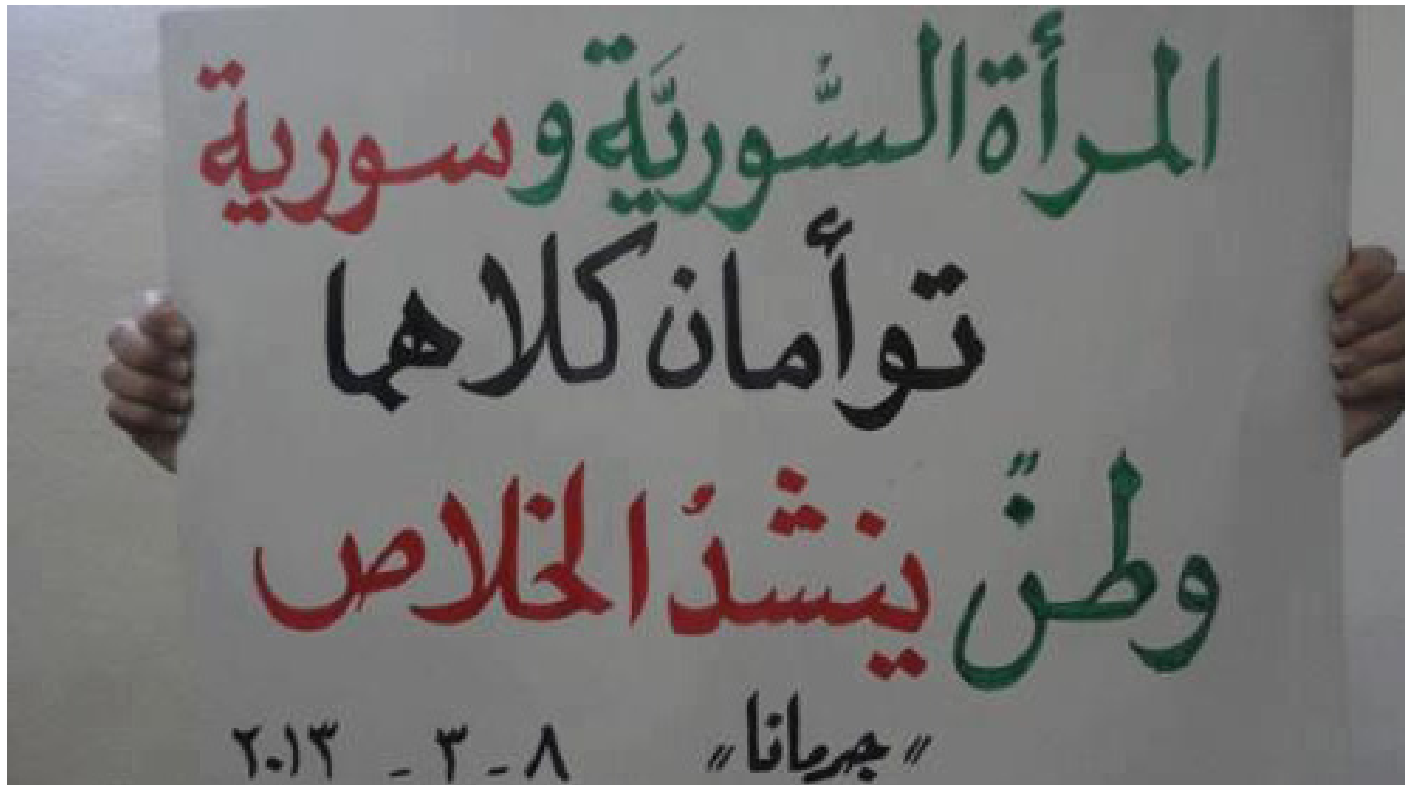 المرأة السُّوريَّة وسورية
توأمان كلاهما
وطنٌ ينشدُ الخلاص
"جرمانا" ٨ - ٣ - ٢٠١٣